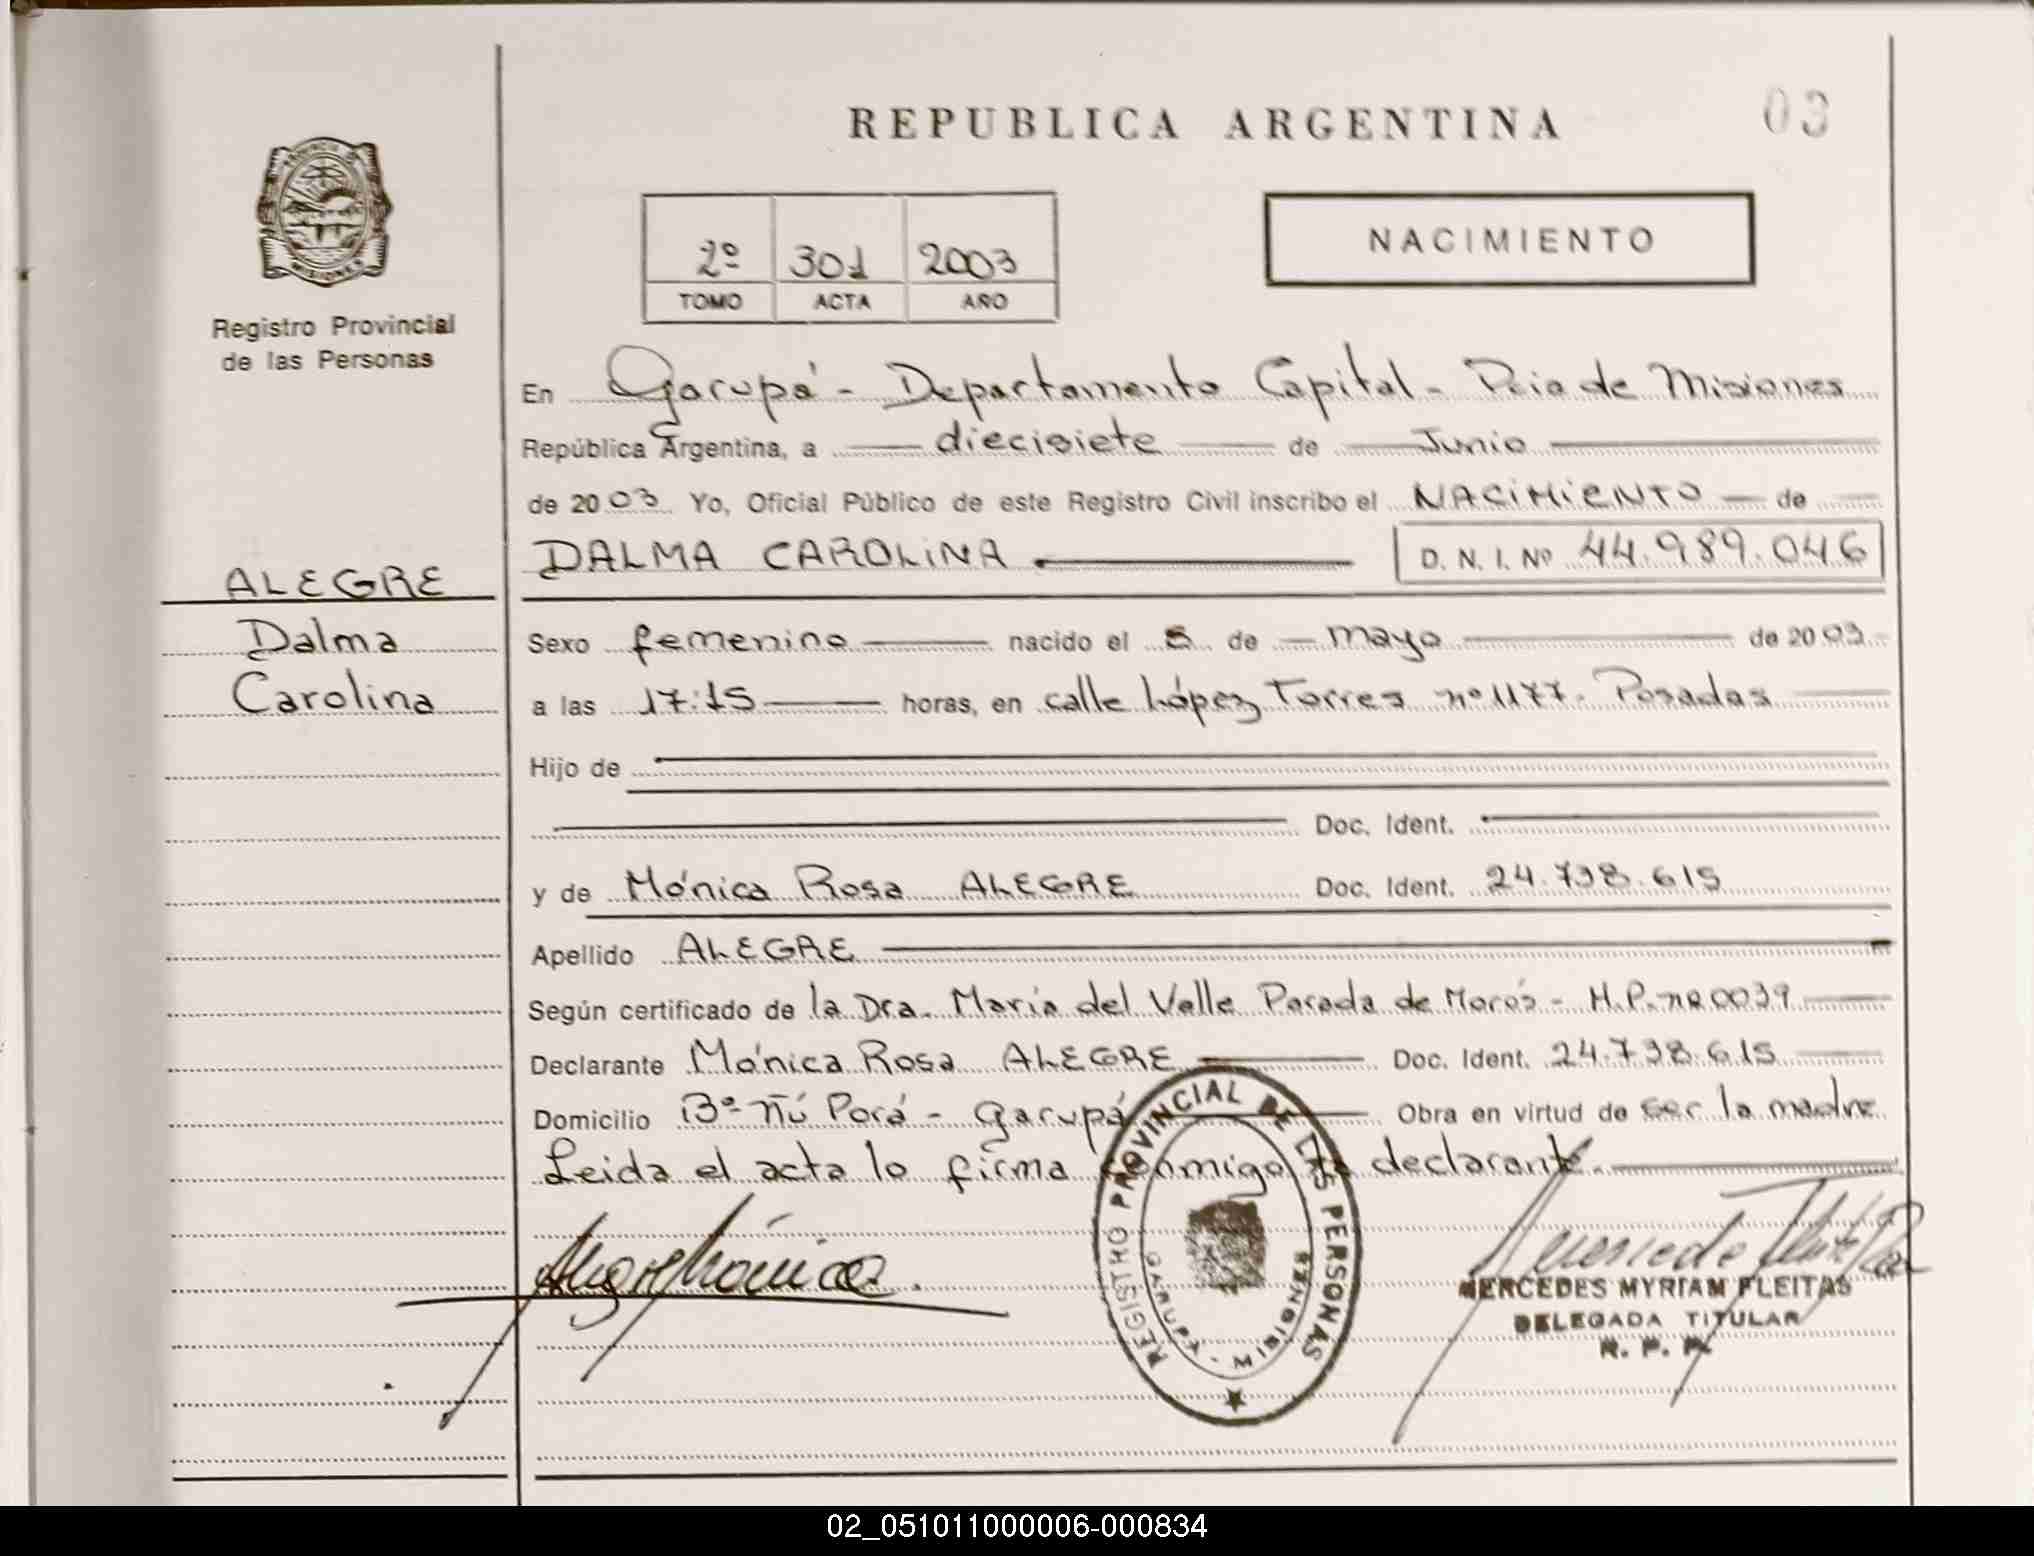 REPUBLICA ARGENTINA
03
PROVINCIA DE
MISIONES
Registro Provincial
de las Personas
2º 301 2003
TOMO ACTA AÑO
NACIMIENTO
En Garupá - Departamento Capital - Pcia de Misiones
República Argentina, a diecisiete de Junio
de 2003 Yo, Oficial Público de este Registro Civil inscribo el NACIMIENTO de
DALMA CAROLINA D. N. I. Nº 44.989.046
ALEGRE
Dalma
Carolina
Sexo femenino nacido el 5 de mayo de 2003
a las 17:15 horas, en calle López Torres nº 1177. Posadas
Hijo de
Doc. Ident.
y de Mónica Rosa ALEGRE Doc. Ident. 24.738.615
Apellido ALEGRE
Según certificado de la Dra. María del Valle Parada de Morós - M.P. nº 0039
Declarante Mónica Rosa ALEGRE Doc. Ident. 24.738.615
Domicilio Bº Ñú Porá - Garupá Obra en virtud de ser la madre
Leida el acta lo firma conmigo la declarante.
Alegre Mónica
REGISTRO PROVINCIAL DE LAS PERSONAS
GARUPA - MISIONES
MERCEDES MYRIAM FLEITAS
DELEGADA TITULAR
R. P. P.
02_051011000006-000834